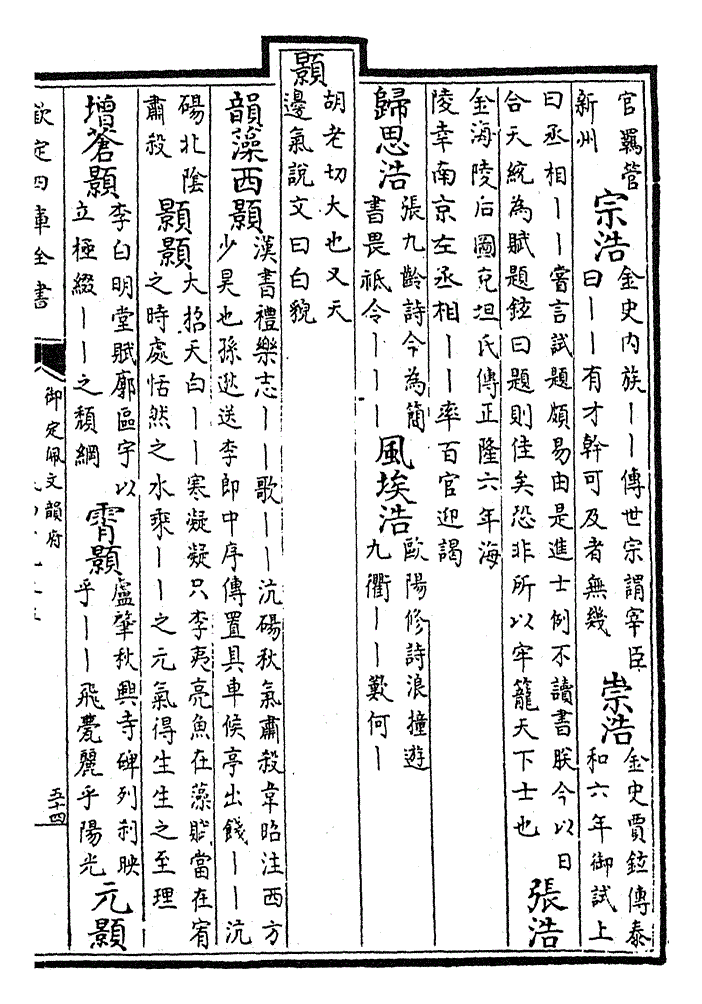 官羈管
新州
宗浩
金史内族丨丨傳世宗謂宰臣
曰丨丨有才幹可及者無幾
崇浩
金史賈鉉傳泰
和六年御試上
曰丞相丨丨嘗言試題頗易由是進士例不讀書朕今以日
合天統為賦題鉉曰題則佳矣恐非所以牢籠天下士也
張浩
金海陵后圖克坦氏傳正隆六年海
陵幸南京左丞相丨丨率百官迎謁
歸思浩
張九齡詩今為簡
書畏祇令丨丨丨
風埃浩
歐陽修詩浪撞遊
九衢丨丨歎何丨
顥
胡老切大也又天
邊氣說文曰白貌
韻藻西顥
漢書禮樂志丨丨歌丨丨沆碭秋氣肅殺韋昭注西方
少昊也孫逖送李郎中序傳置具車候亭出餞丨丨沆
碭北陰
肅殺
顥顥
大招天白丨丨寒凝凝只李夷亮魚在藻賦當在宥
之時處恬然之水乘丨丨之元氣得生生之至理
增蒼顥
李白明堂賦廓區宇以
立極綴丨丨之頹綱
霄顥
盧肇秋興寺碑列刹映
乎丨丨飛甍麗乎陽光
元顥
欽定四庫全書
御定佩文韻府
五十四